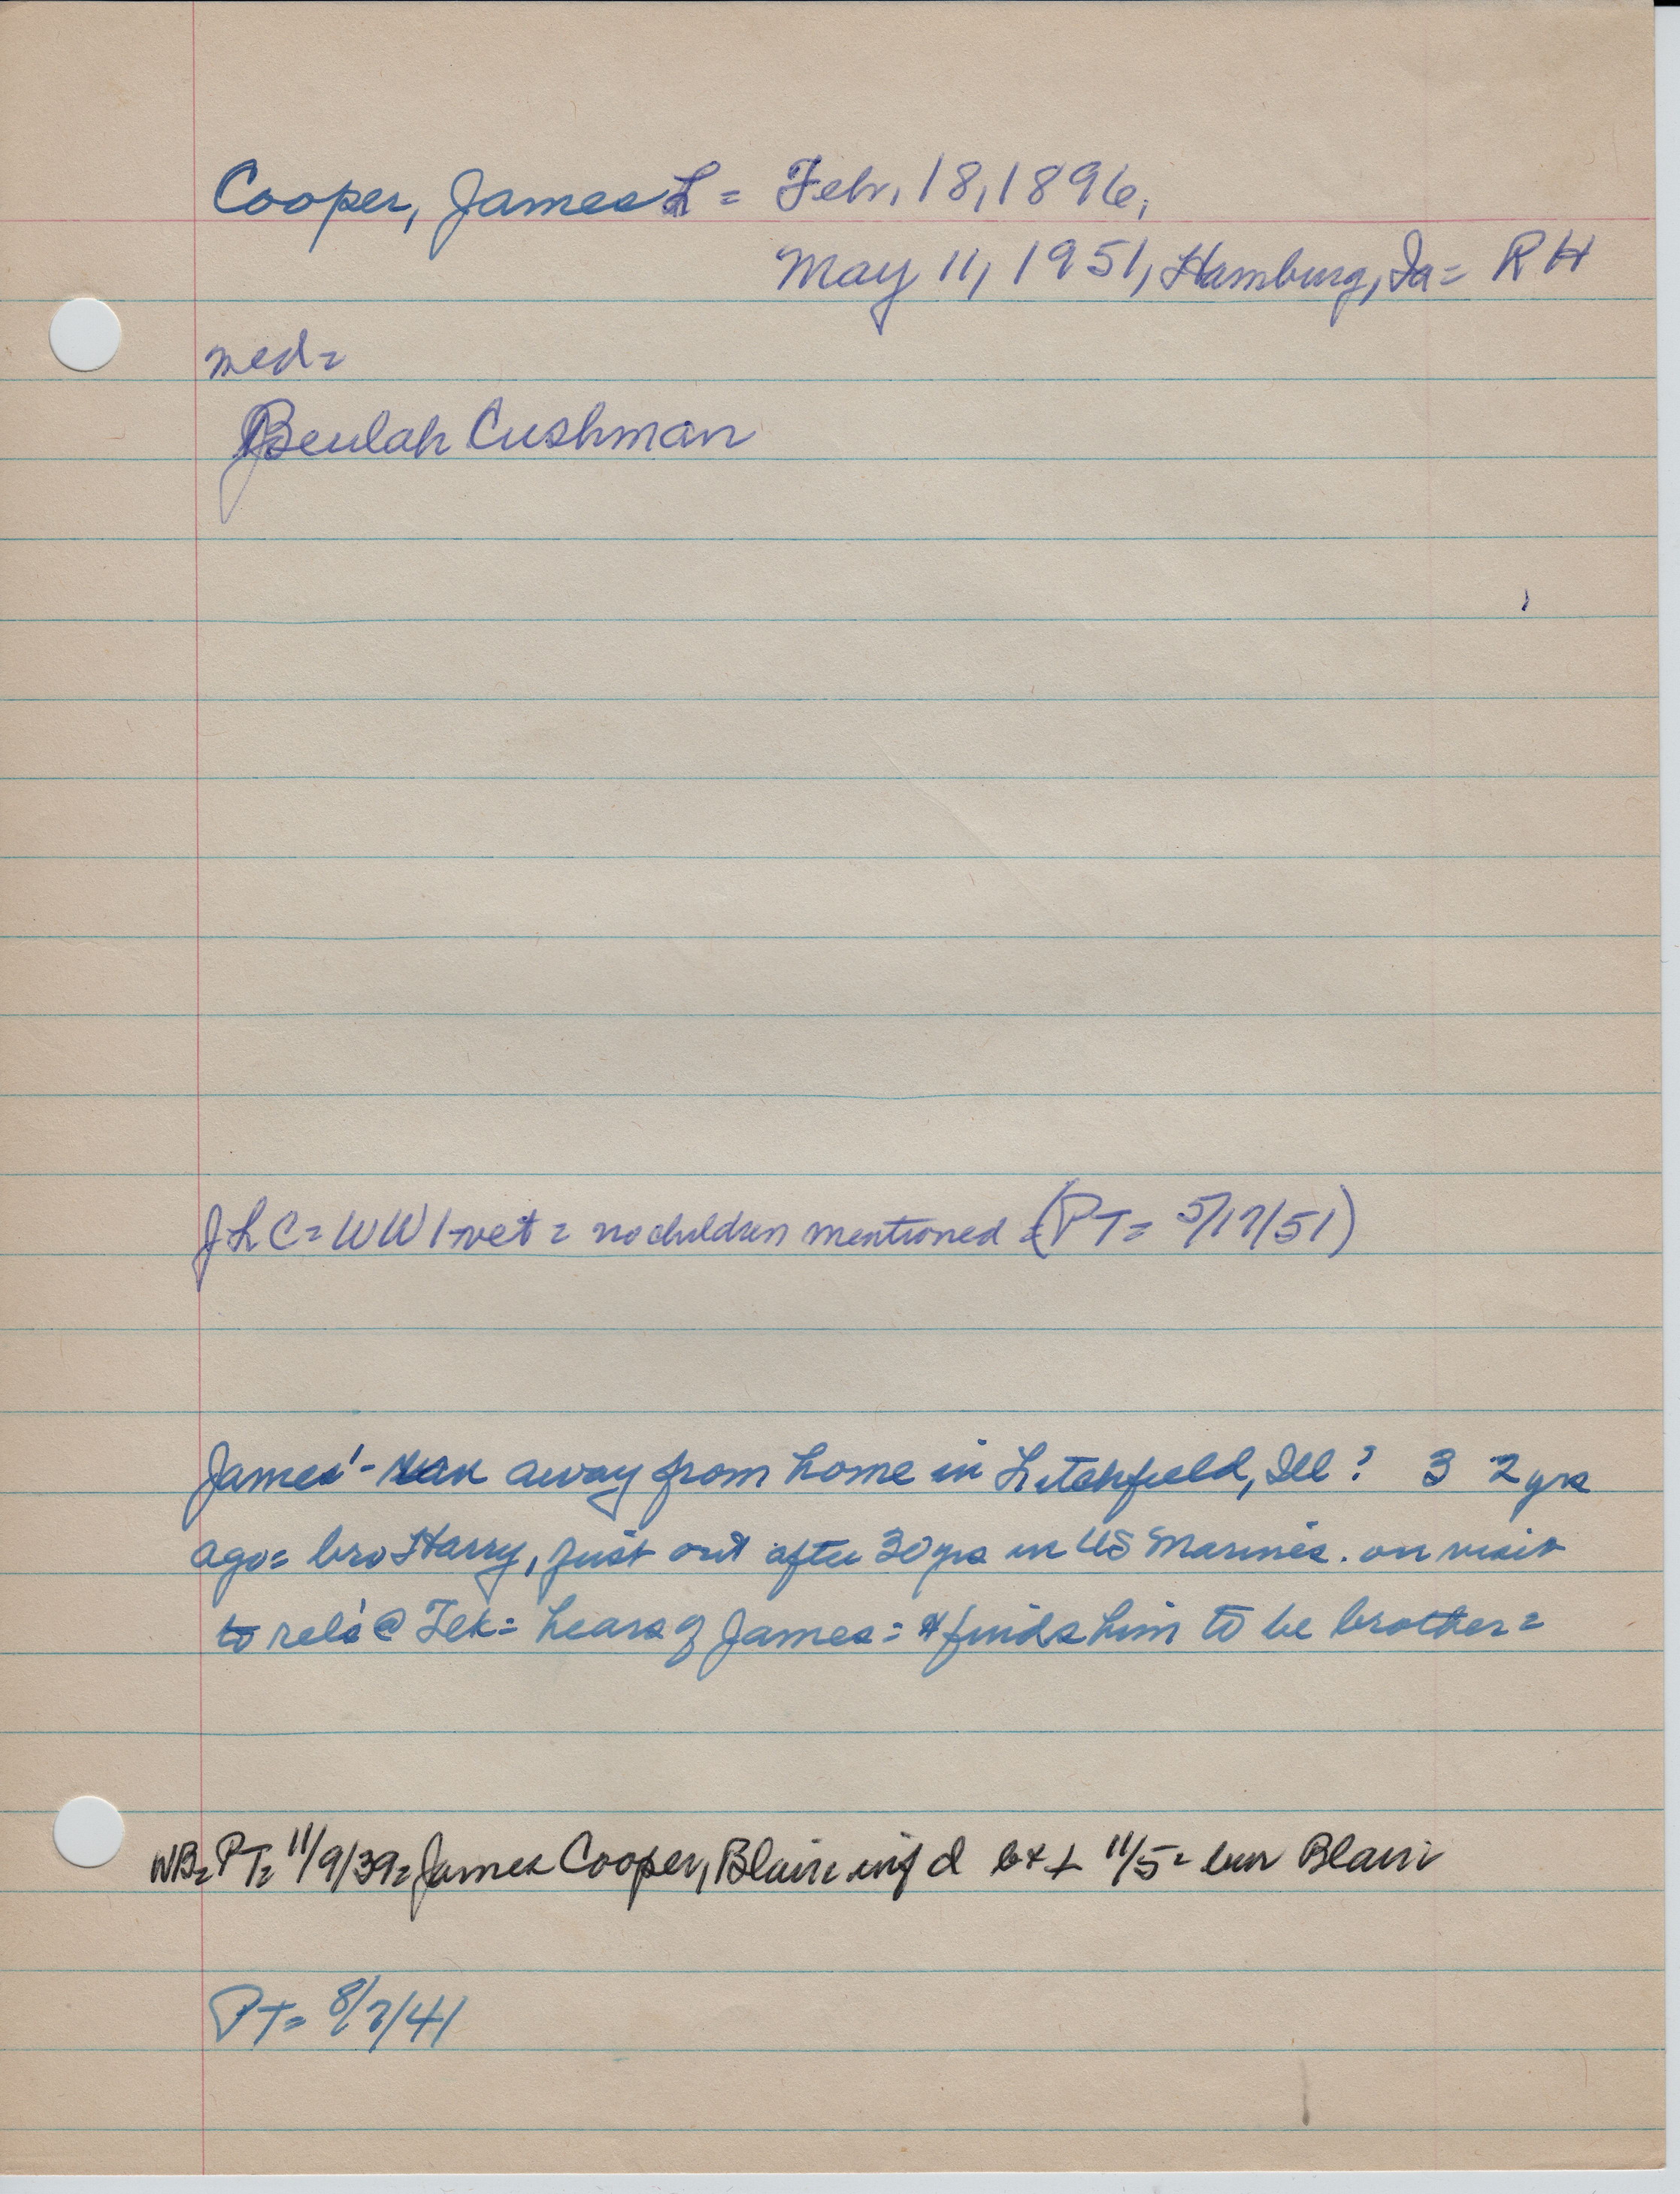 Cooper, James L = Febr, 18, 1896,
May 11, 1951, Hamburg, Ia = RH
med=
Beulah Cushman
JLC = WW1-vet = no children mentioned = (PT = 5/17/51)
James' - ran away from home in Litchfield, Ill? 32 yrs
ago = bro Harry, just out after 30 yrs in US Marines. on visit
to rels @ Tek = hears of James = & finds him to be brother =
NB = PT = 11/9/39 = James Cooper, Blair inf d b + 11/5 = bur Blair
PT = 8/7/41